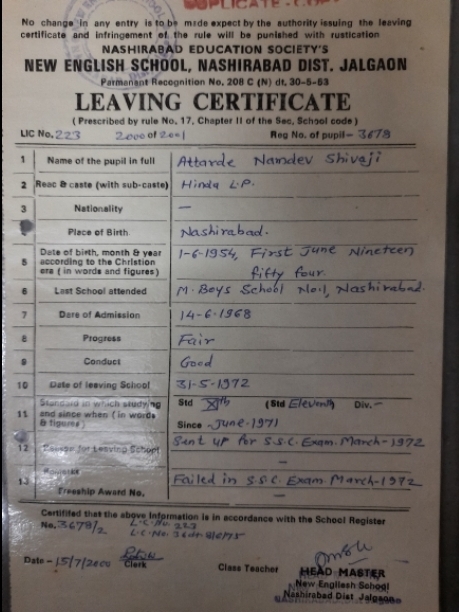 DUPLICATE - COPY
No change in any entry is to be made expect by the authority issuing the leaving
certificate and infringement of the rule will be punished with rustication
NASHIRABAD EDUCATION SOCIETY'S
NEW ENGLISH SCHOOL, NASHIRABAD DIST. JALGAON
Parmanant Recognition No. 208 C (N) dt, 30-5-63
LEAVING CERTIFICATE
( Prescribed by rule No. 17, Chapter II of the Sec, School code )
L/C No. 223 2000 of 2001 Reg No. of pupil - 3678
1 Name of the pupil in full Attarde Namdev Shivaji
2 Reac & caste (with sub-caste) Hindu L.P.
3 Nationality —
4 Place of Birth Nashirabad.
5 Date of birth, month & year according to the Christion era ( in words and figures) 1-6-1954, First June Nineteen
fifty four.
6 Last School attended M. Boys School No.1, Nashirabad.
7 Date of Admission 14-6-1968
8 Progress Fair
9 Conduct Good
10 Date of leaving School 31-5-1972
11 Standard in which studying and since when ( in words & figures) Std XIth (Std Eleventh) Div. —
Since - June-1971
12 Reason for Leaving School Sent up for S.S.C. Exam. March-1972
—
13 Failed in S.S.C. Exam. March-1972
Freeship Award No. —
Certified that the above Information is in accordance with the School Register
No. 3678/2 L.C. No. 223
L.C. No.
Date - 15/7/2000 Clerk Class Teacher HEAD MASTER
New Engliesh School
Nashirabad Dist Jalgaon